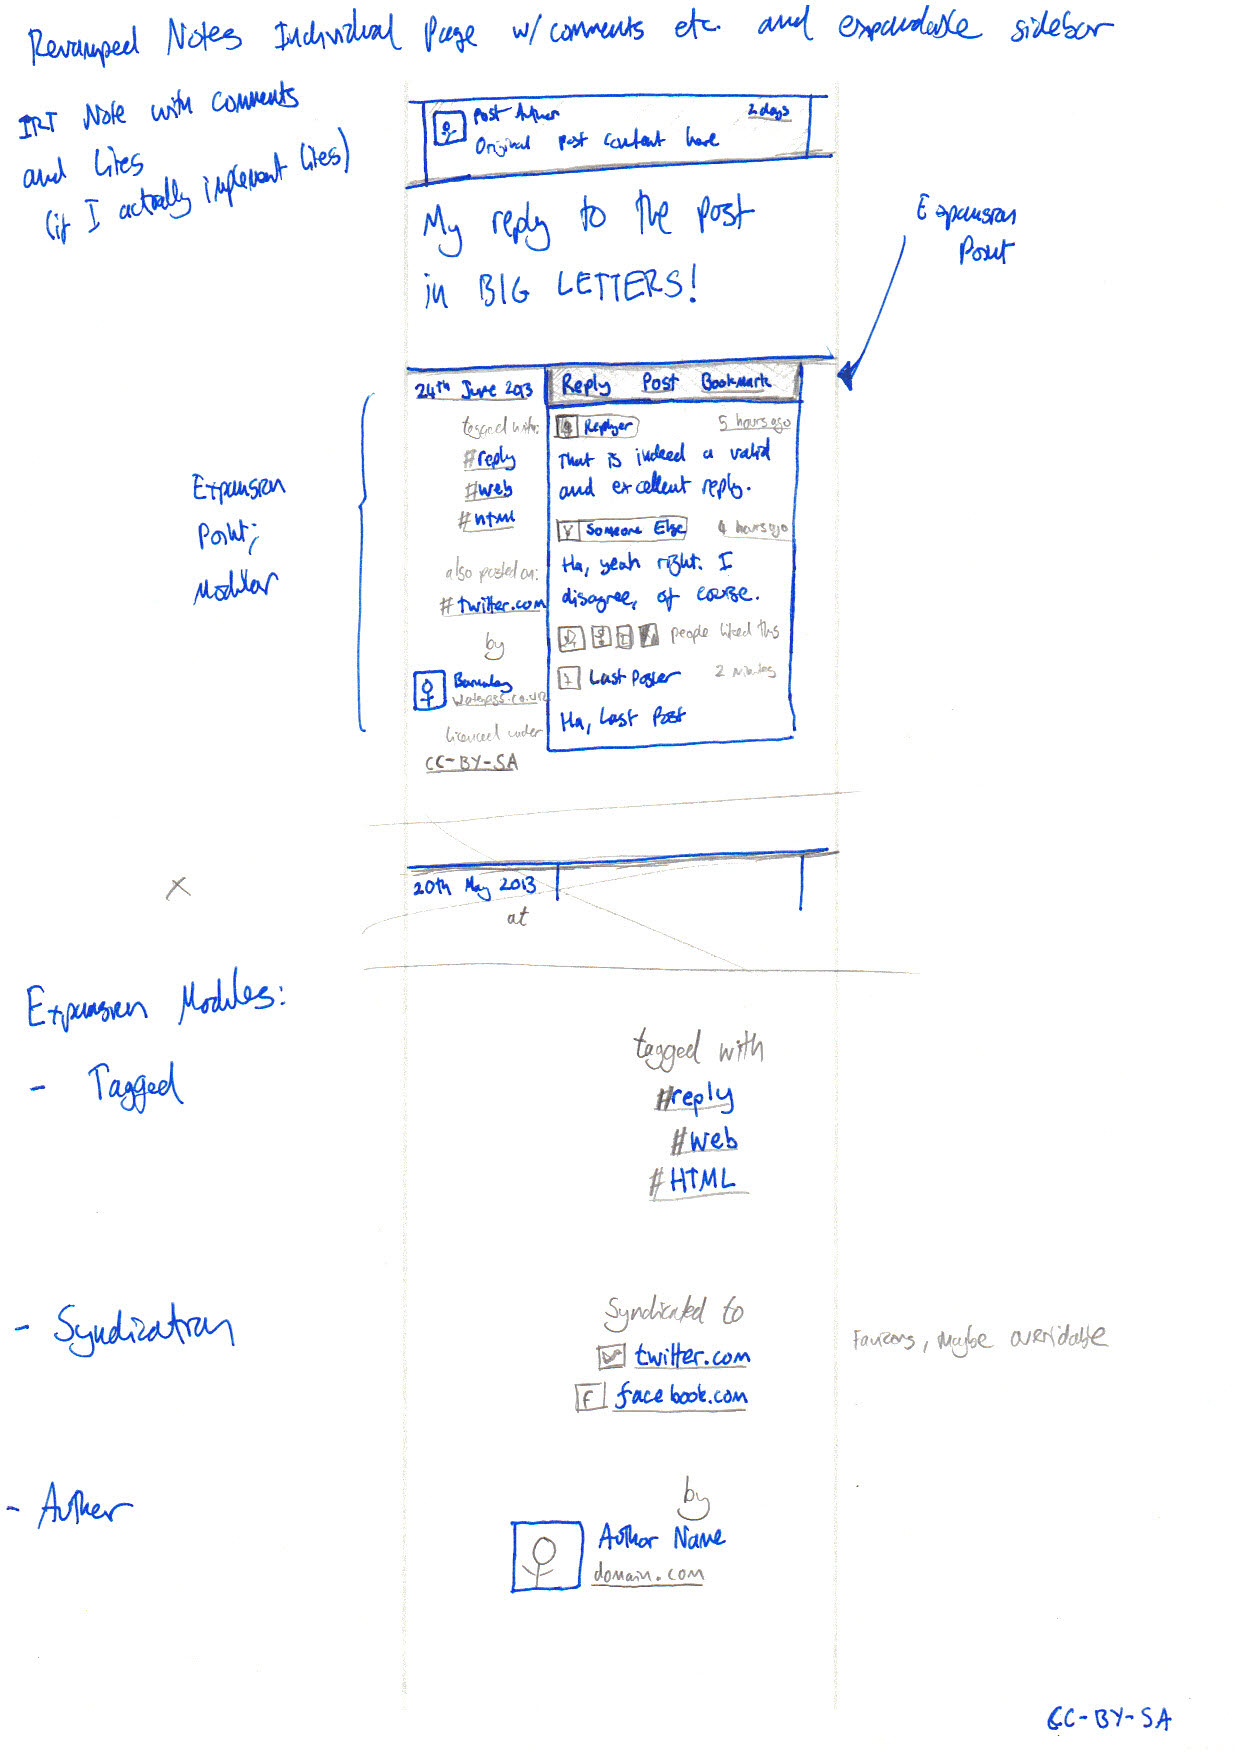 Revamped Notes Individual Page w/ comments etc. and expandable sidebar
IRT Note with comments
and Likes
(if I actually implement likes)
Post Author 2 days
Original post content here
My reply to the post
in BIG LETTERS!
Expansion
Point
24th June 2013 Reply Post Bookmark
tagged with:
#reply
#web
#html
also posted on:
#twitter.com
by
Barnaby
waterpigs.co.uk
Licenced under
CC-BY-SA
Replyer 5 hours ago
That is indeed a valid
and excellent reply.
Someone Else 4 hours ago
Ha, yeah right. I
disagree, of course.
people liked this
Last Poster 2
Ha, Last Post
Expansion
Point;
Modular
20th May 2013
at
X
Expansion Modules:
- Tagged
tagged with
#reply
#web
#HTML
- Syndication
Syndicated to
twitter.com
f facebook.com
Favicons, maybe overidable
- Author
by
Author Name
domain.com
CC-BY-SA